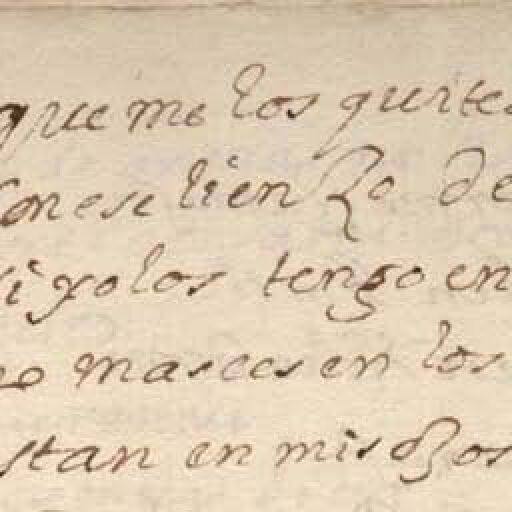 que me los quite
con ese lienzo de
si yo los tengo en
no mas ees en los
stan en mis ojos